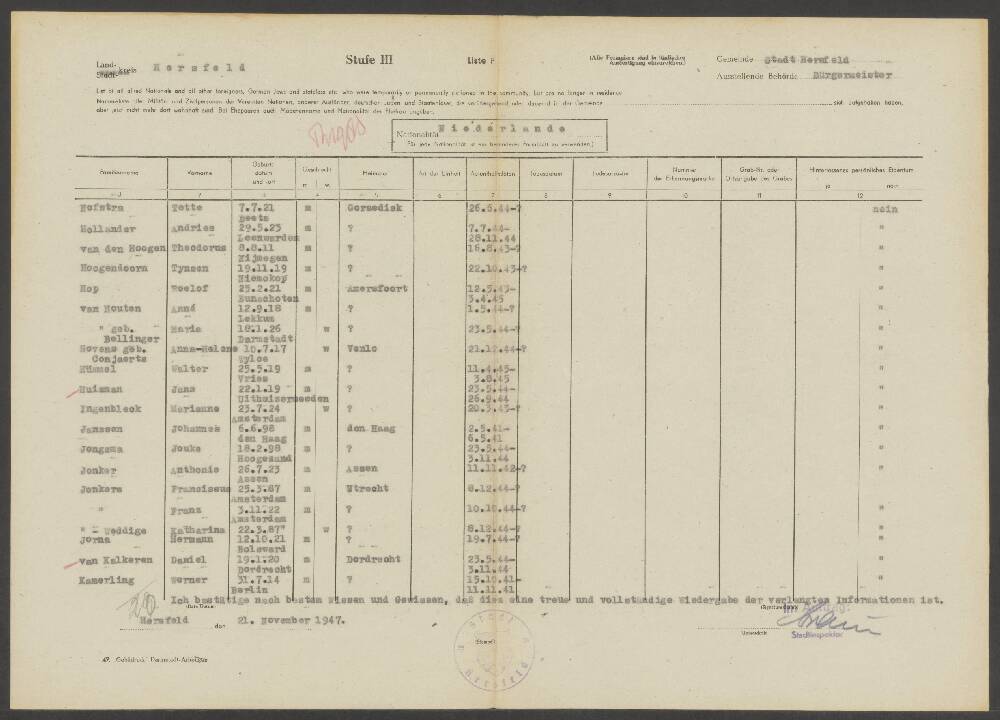 Land-
Stadt- kreis Hersfeld
Stufe III
Liste F
Gemeinde Stadt Hersfeld
Ausstellende Behörde Bürgermeister
List of all allied Nationals and all other foreigners, German Jews and stateless etc. who were temporarily or permanently stationed in the community, but are no longer in residence
sich aufgehalten haben,
aber jetzt nicht mehr dort wohnhaft sind. Bei Ehepaaren auch Mädchenname und Nationalität der Ehefrau angeben.
Nationalität Niederlande
(Für jede Nationalität ist ein besonderes Formblatt zu verwenden.)
Familienname Vorname Geburts-datum und -ort Geschlecht m w Heimatort Art der Einheit Aufenthaltsdaten Todesdatum Todesursache Nummer der Erkennungsmarke Grab-Nr. oder Ortsangabe des Grabes Hinterlassenes persönliches Eigentum ja nein
1 2 3 4 5 6 7 8 9 10 11 12
Hofstra Tette 7.7.21 m Gormedisk 26.6.44-? nein
Beets
Hollander Andries 29.5.23 m ? 7.7.44- "
Leeuwarden 28.11.44
van den Hoogen Theodorus 8.8.11 m ? 16.8.43-? "
Nijmegen
Hoogendoorn Tynsen 19.11.19 m ? 22.10.43-? "
Niemokop
Hop Roelof 25.2.21 m Amersfoort 12.5.43- "
Bunschoten 3.4.45
van Houten Anné 12.9.18 m ? 1.5.44-? "
Lekkum
" geb. Maria 18.1.26 w ? 23.5.44-? "
Bellinger Darmstadt
Hovens geb. Anna-Helene 10.7.17 w Venlo 21.12.44-? "
Conjaerts Wyloe
Hümmel Walter 25.5.19 m ? 11.4.45- "
Vries 3.8.45
Huisman Jans 22.1.19 m ? 23.5.44- "
Uithuizermeeden 26.9.44
Ingenbleek Marianne 23.7.24 w ? 20.3.43-? "
Amsterdam
Janssen Johannes 6.6.98 m den Haag 2.5.41- "
den Haag 6.5.41
Jongsma Jouke 18.2.98 m ? 23.5.44- "
Hoogezand 3.11.44
Jonker Anthonie 26.7.23 m Assen 11.11.42-? "
Assen
Jonkers Franciscus 25.3.87 m Utrecht 8.12.44-? "
Amsterdam
" Franz 3.11.22 m ? 10.10.44-? "
Amsterdam
" - Weddige Katharina 22.3.87 w ? 8.12.44-? "
Jorna Hermann 12.10.21 m ? 19.7.44-? "
Bolsward
van Kalkeren Daniel 19.1.20 m Dordrecht 23.5.44- "
Dordrecht 3.11.44
Kamerling Werner 31.7.14 m ? 15.10.41- "
Berlin 11.11.41
Ich bestätige nach bestem Wissen und Gewissen, daß dies eine treue und vollständige Wiedergabe der verlangten Informationen ist.
Hersfeld den 21. November 1947.
Im Auftrag:
Unterschrift
Stadtinspektor
(Stempel)
Stadt
Hersfeld